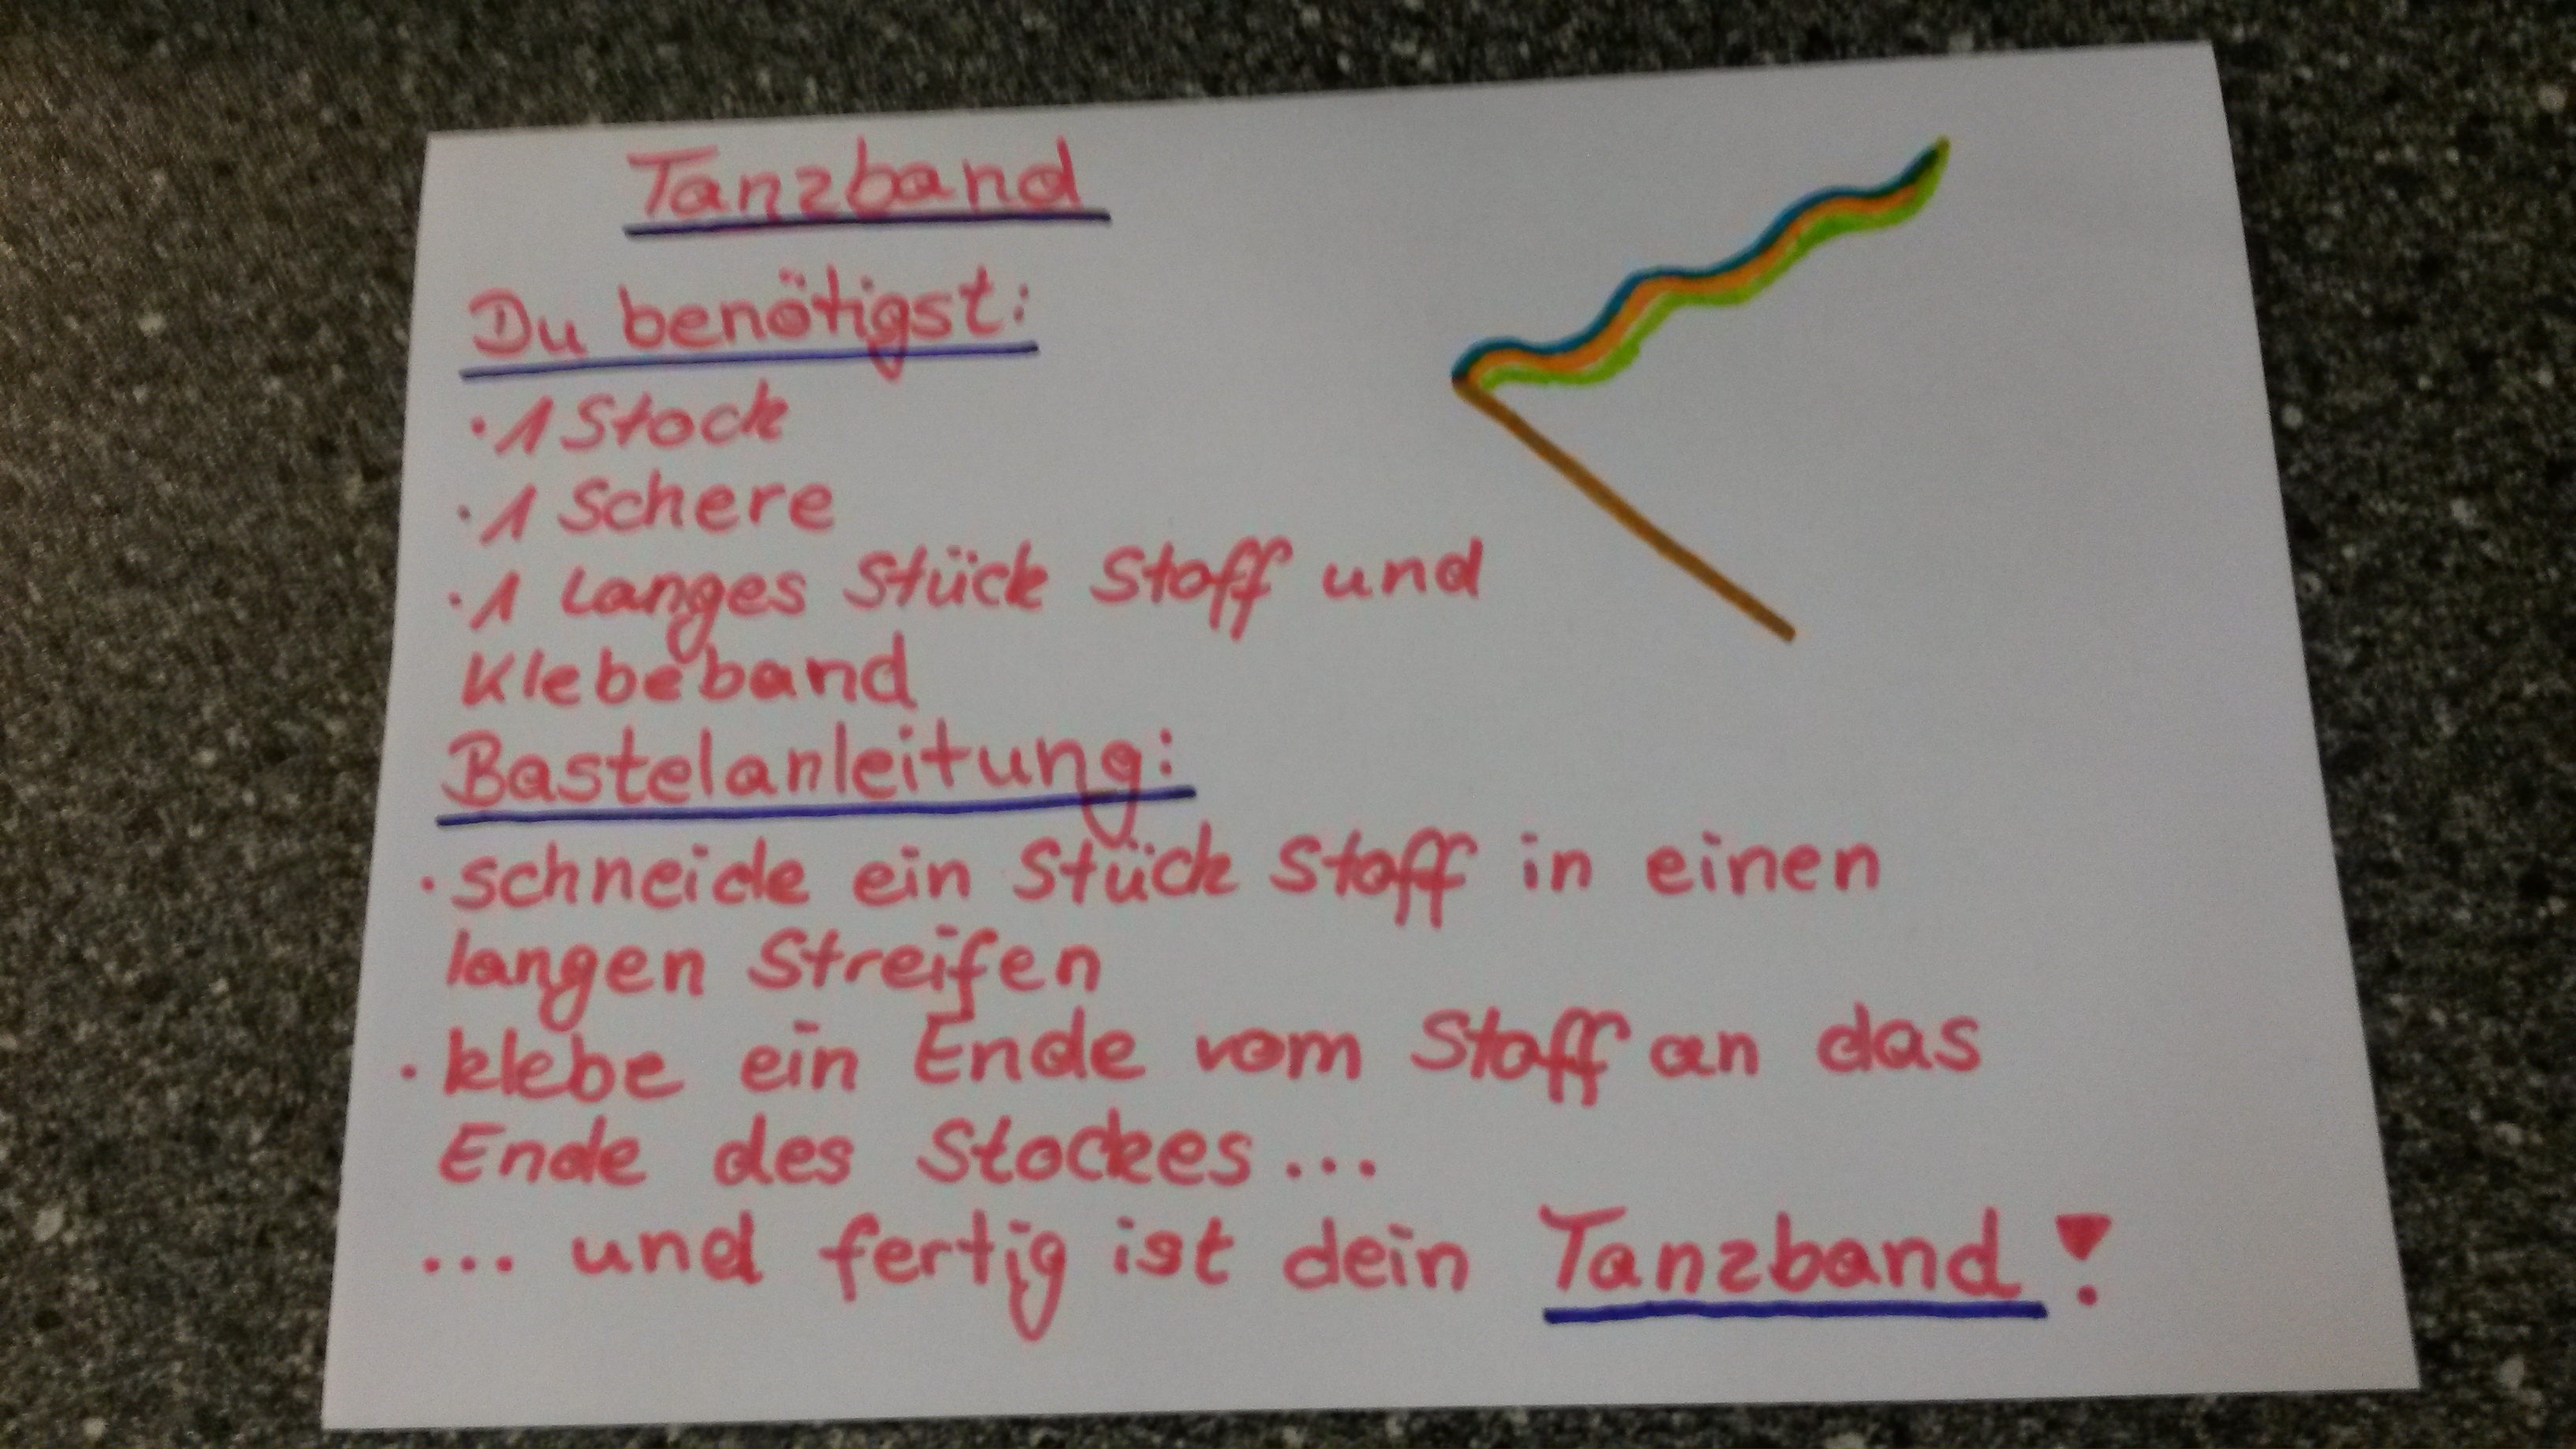 Tanzband
Du benötigst:
· 1 Stock
· 1 Schere
· 1 langes Stück Stoff und
Klebeband
Bastelanleitung:
· schneide ein Stück Stoff in einen
langen Streifen
· klebe ein Ende vom Stoff an das
Ende des Stockes...
... und fertig ist dein Tanzband!